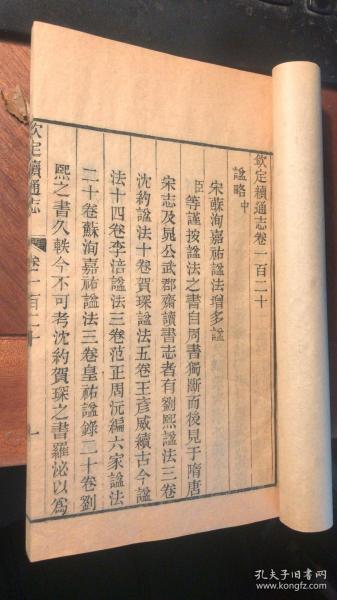 欽定續通志卷一百二十
諡略中
宋蘇洵嘉祐諡法增多諡
臣等謹按諡法之書自周書獨斷而後見于隋唐
宋志及晁公武郡齋讀書志者有劉熙諡法三卷
沈約諡法十卷賀琛諡法五卷王彥威續古今諡
法十四卷李涪諡法三卷范正周沆編六家諡法
二十卷蘇洵嘉祐諡法三卷皇祐諡錄二十卷劉
熙之書久軼今不可考沈約賀琛之書羅泌以爲
欽定續通志
卷一百二十
一
孔夫子旧书网
www.kongfz.com